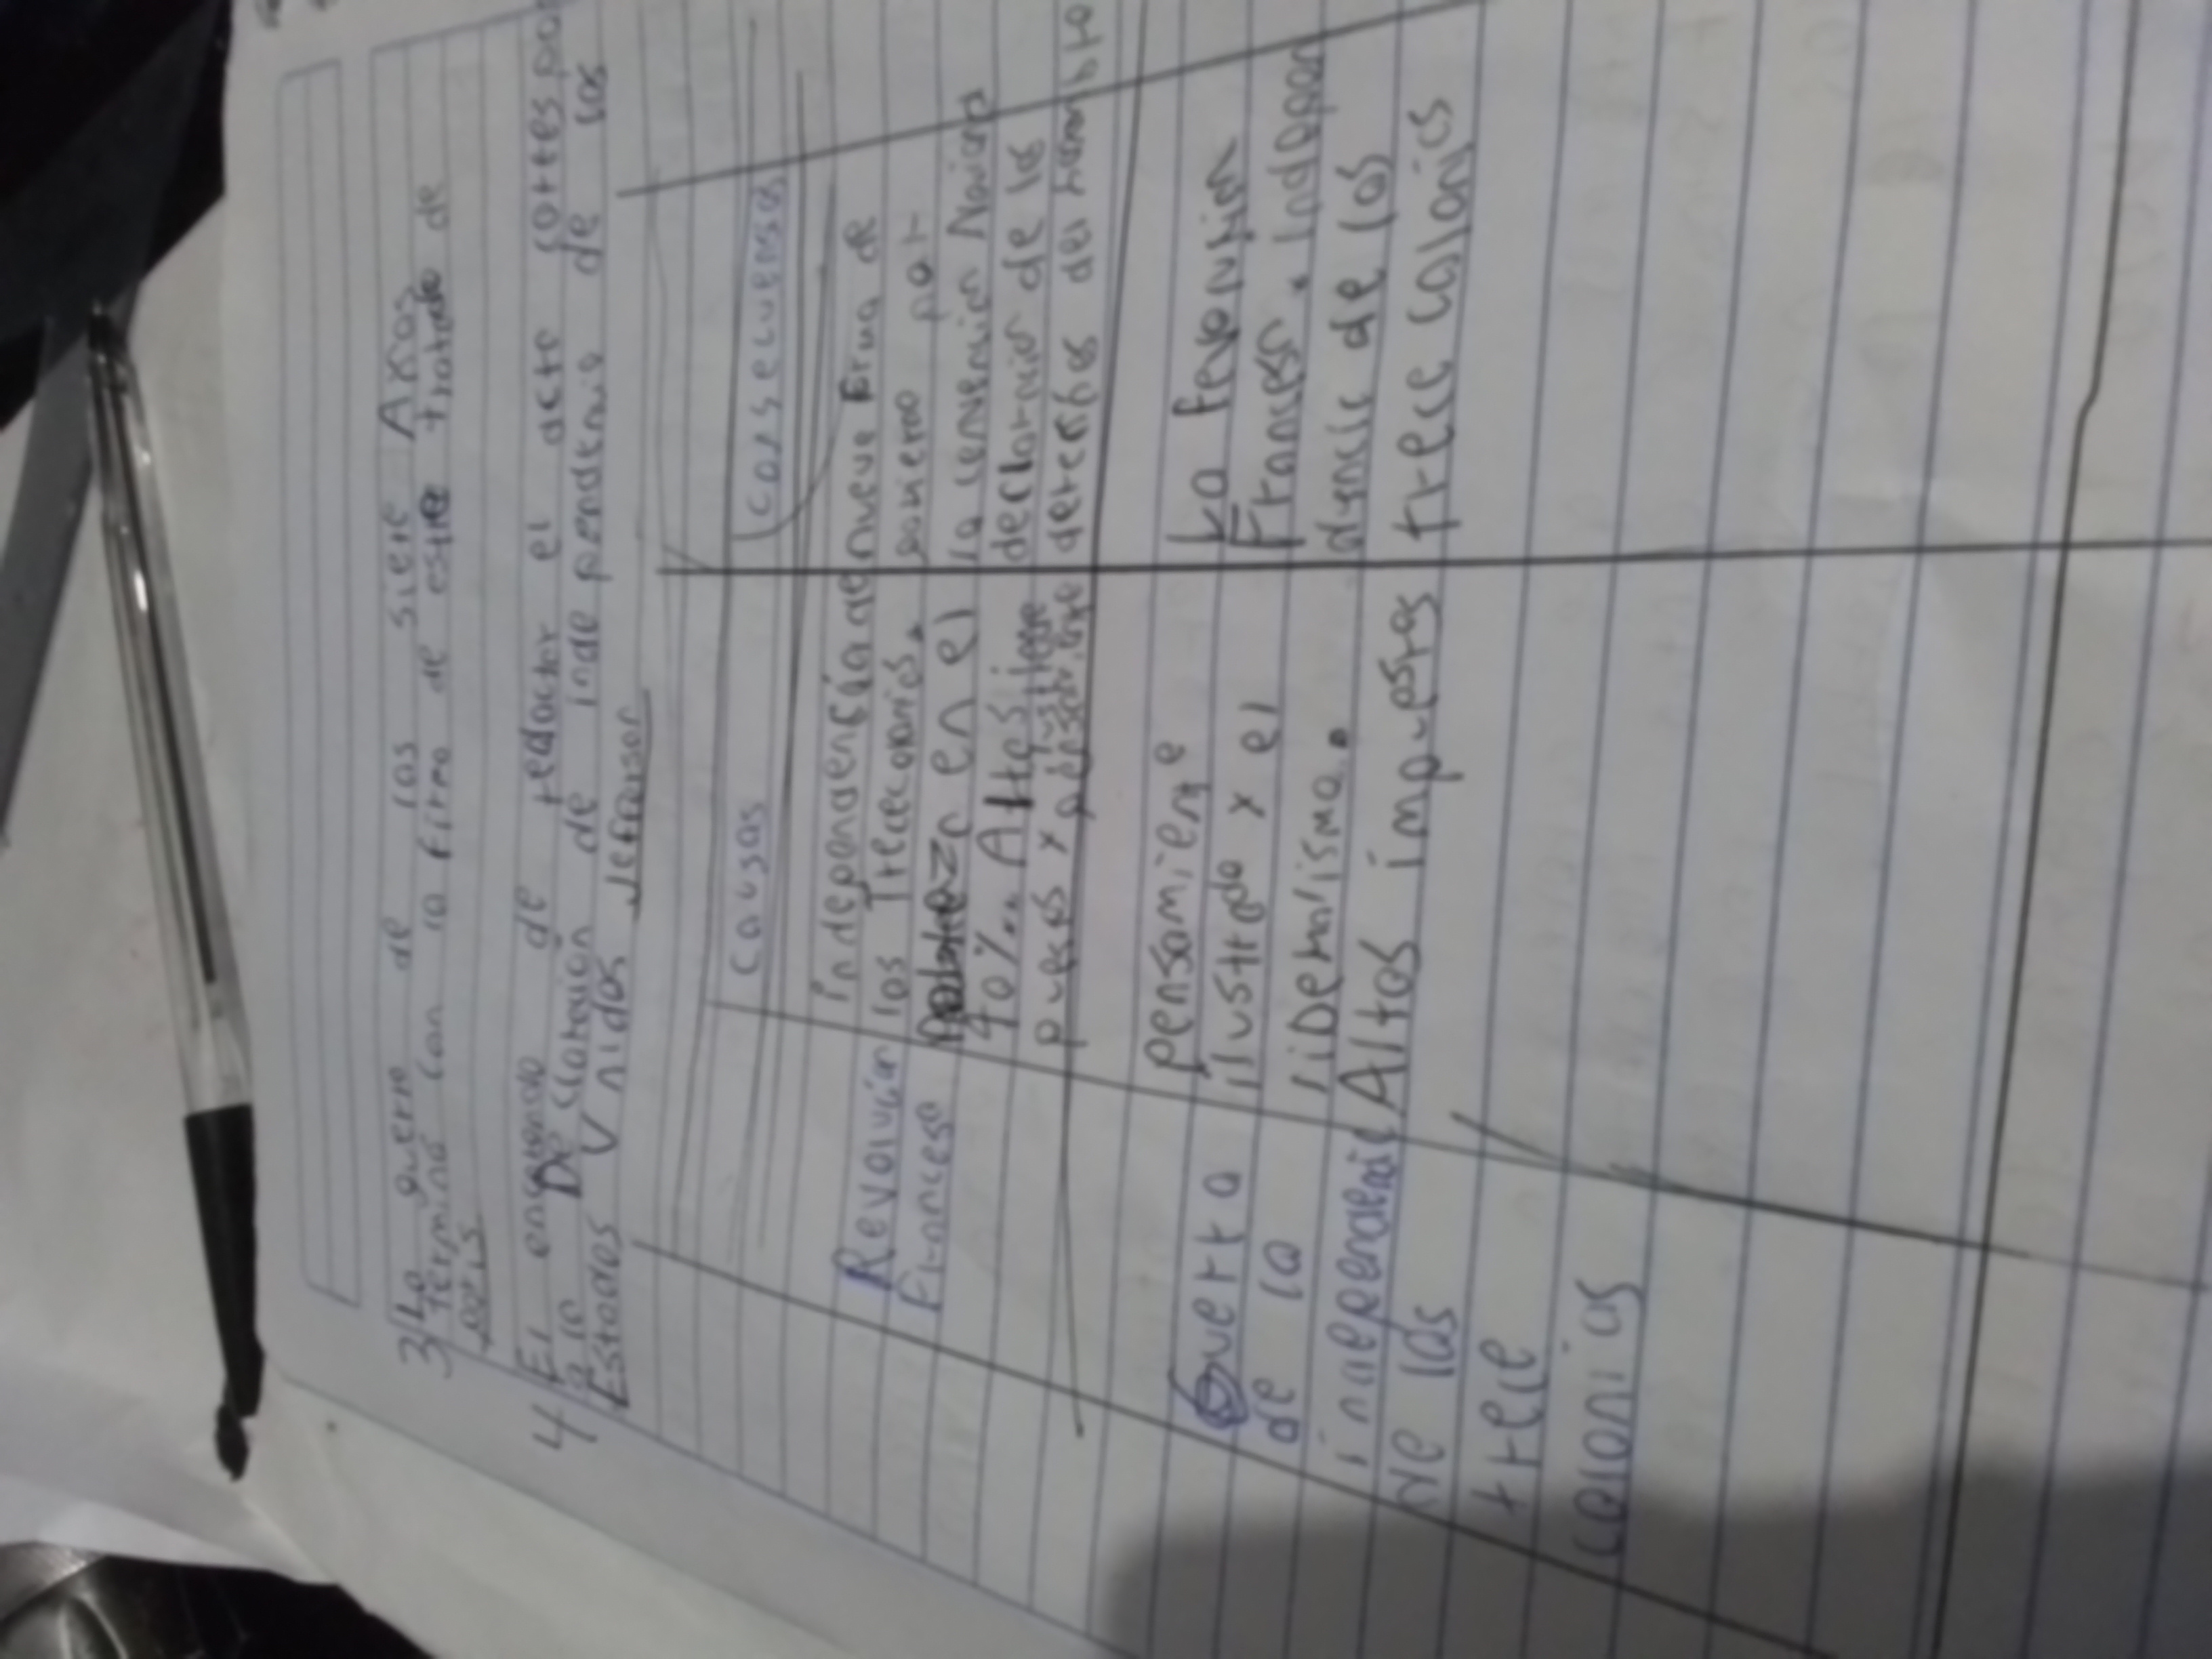 3 La guerra de los siete Años
termino con la firma de este tratado de
paris
4 El encargado de redactar el acto
a la Declaración de inde pendencia de los
Estados Vnidos Jefferson
Causas
Consecuensas
Revolución
Francesa
independencia de
los Trececolonias.
en el
40%.. Altos im
puestos x
nueva
por
la convension Naciona
declaracion de los
derechos del hombre
Guerra
de la
independencia
de las
trece
colonias
pensamiente
ilustrado x el
liberalismo.
Altos impuestos
La Revolusion
Francesa x Indepen
dencia de las
trece colonias